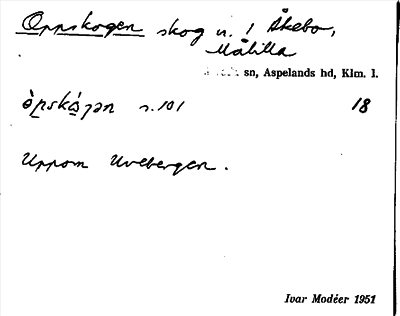 Oppskogen skog n. 1 Åkebo,
Målilla
sn, Aspelands hd, Klm. l.
s. 101 18
Uppom Uvebergen.
Ivar Modéer 1951